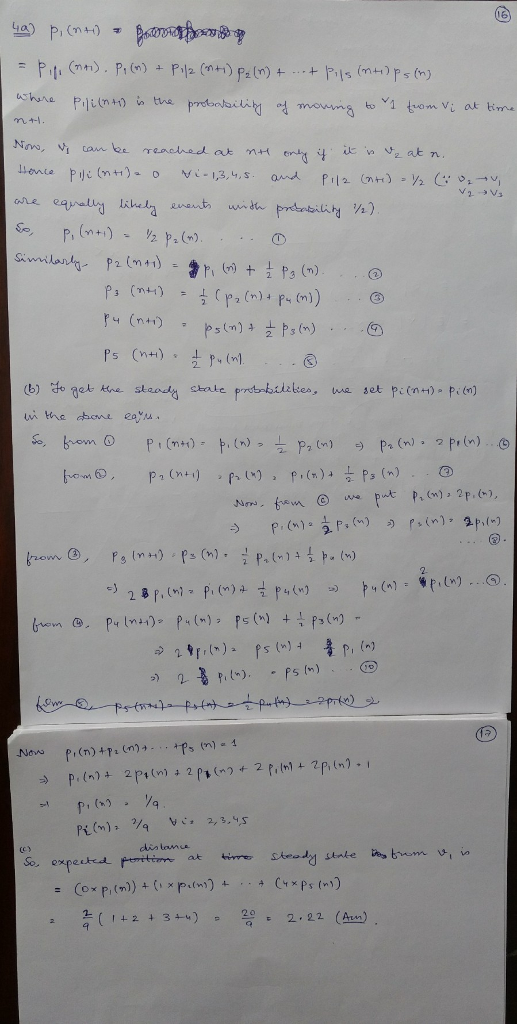 16
4a) p₁(n+1) =
= P₁|₁(n+1). P₁(n) + P₁|₂(n+1) P₂(n) + ... + P₁|₅(n+1) P₅(n)
where P₁|i(n+1) is the probability of moving to v1 from vi at time
n+1.
Now, v₁ can be reached at n+1 only if it is v₂ at n.
Hence P₁|i(n+1) = 0 ∀ i=1,3,4,5. and P₁|₂(n+1) = 1/2 (∵ v₂→v₁
v₂→v₃
are equally likely events with probability 1/2).
So, p₁(n+1) = 1/2 p₂(n). ... ①
Similarly p₂(n+1) = p₁(n) + 1/2 p₃(n). ... ②
p₃(n+1) = 1/2 (p₂(n) + p₄(n)) ... ③
p₄(n+1) = p₅(n) + 1/2 p₃(n) ... ④
p₅(n+1) = 1/2 p₄(n) ... ⑤
(b) To get the steady state probabilities, we set pi(n+1) = pi(n)
in the above eqns.
So, from ① p₁(n+1) = p₁(n) = 1/2 p₂(n) ⇒ p₂(n) = 2p₁(n) ... ⑥
from ②, p₂(n+1) = p₂(n) = p₁(n) + 1/2 p₃(n) ... ⑦
Now, from ⑥ we put p₂(n) = 2p₁(n),
⇒ p₁(n) = 1/2 p₃(n) ⇒ p₃(n) = 2p₁(n)
... ⑧.
from ③, p₃(n+1) = p₃(n) = 1/2 p₂(n) + 1/2 p₄(n)
⇒ 2 p₁(n) = p₁(n) + 1/2 p₄(n) ⇒ p₄(n) = 2 p₁(n) ... ⑨.
from ④, p₄(n+1) = p₄(n) = p₅(n) + 1/2 p₃(n) =
⇒ 2 p₁(n) = p₅(n) + p₁(n)
⇒ 2 p₁(n). = p₅(n) ... ⑩
from ⑤, p₅(n+1) = p₅(n) = 1/2 p₄(n) = 2p₁(n) ⇒
17
Now p₁(n) + p₂(n) + ... + p₅(n) = 1
⇒ p₁(n) + 2p₁(n) + 2p₁(n) + 2p₁(n) + 2p₁(n) = 1
⇒ p₁(n) = 1/9.
pi(n) = 2/9 ∀ i = 2,3,4,5
(c)
So, expected position distance at time steady state from v₁ is
= (0×p₁(n)) + (1×p₂(n)) + ... + (4×p₅(n))
= 2/9 (1+2+3+4) = 20/9 = 2.22 (Ans).